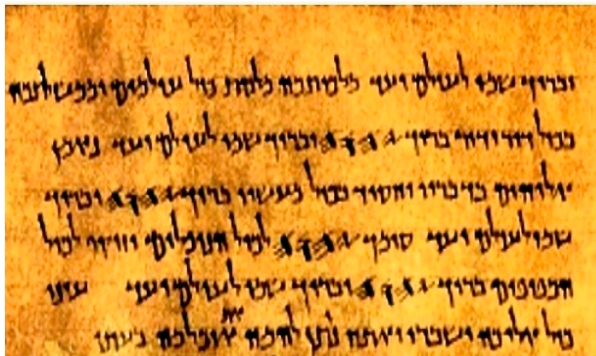 וברוך שמו לעולם ועד מלכותכה מלכות כול עולמים וממשלתכה
בכול דור ודור ברוך 𐤉𐤄𐤅𐤄 וברוך שמו לעולם ועד נאמן
אלוהים בדבריו וחסיד בכול מעשיו ברוך 𐤉𐤄𐤅𐤄 וברוך
שמו לעולם ועד סומך 𐤉𐤄𐤅𐤄 לכול הנופלים וזוקף לכול
הכפופים ברוך 𐤉𐤄𐤅𐤄 וברוך שמו לעולם ועד עיני
כול אליכה ישברו ואתה נותן להמה את אוכלמה בעתו